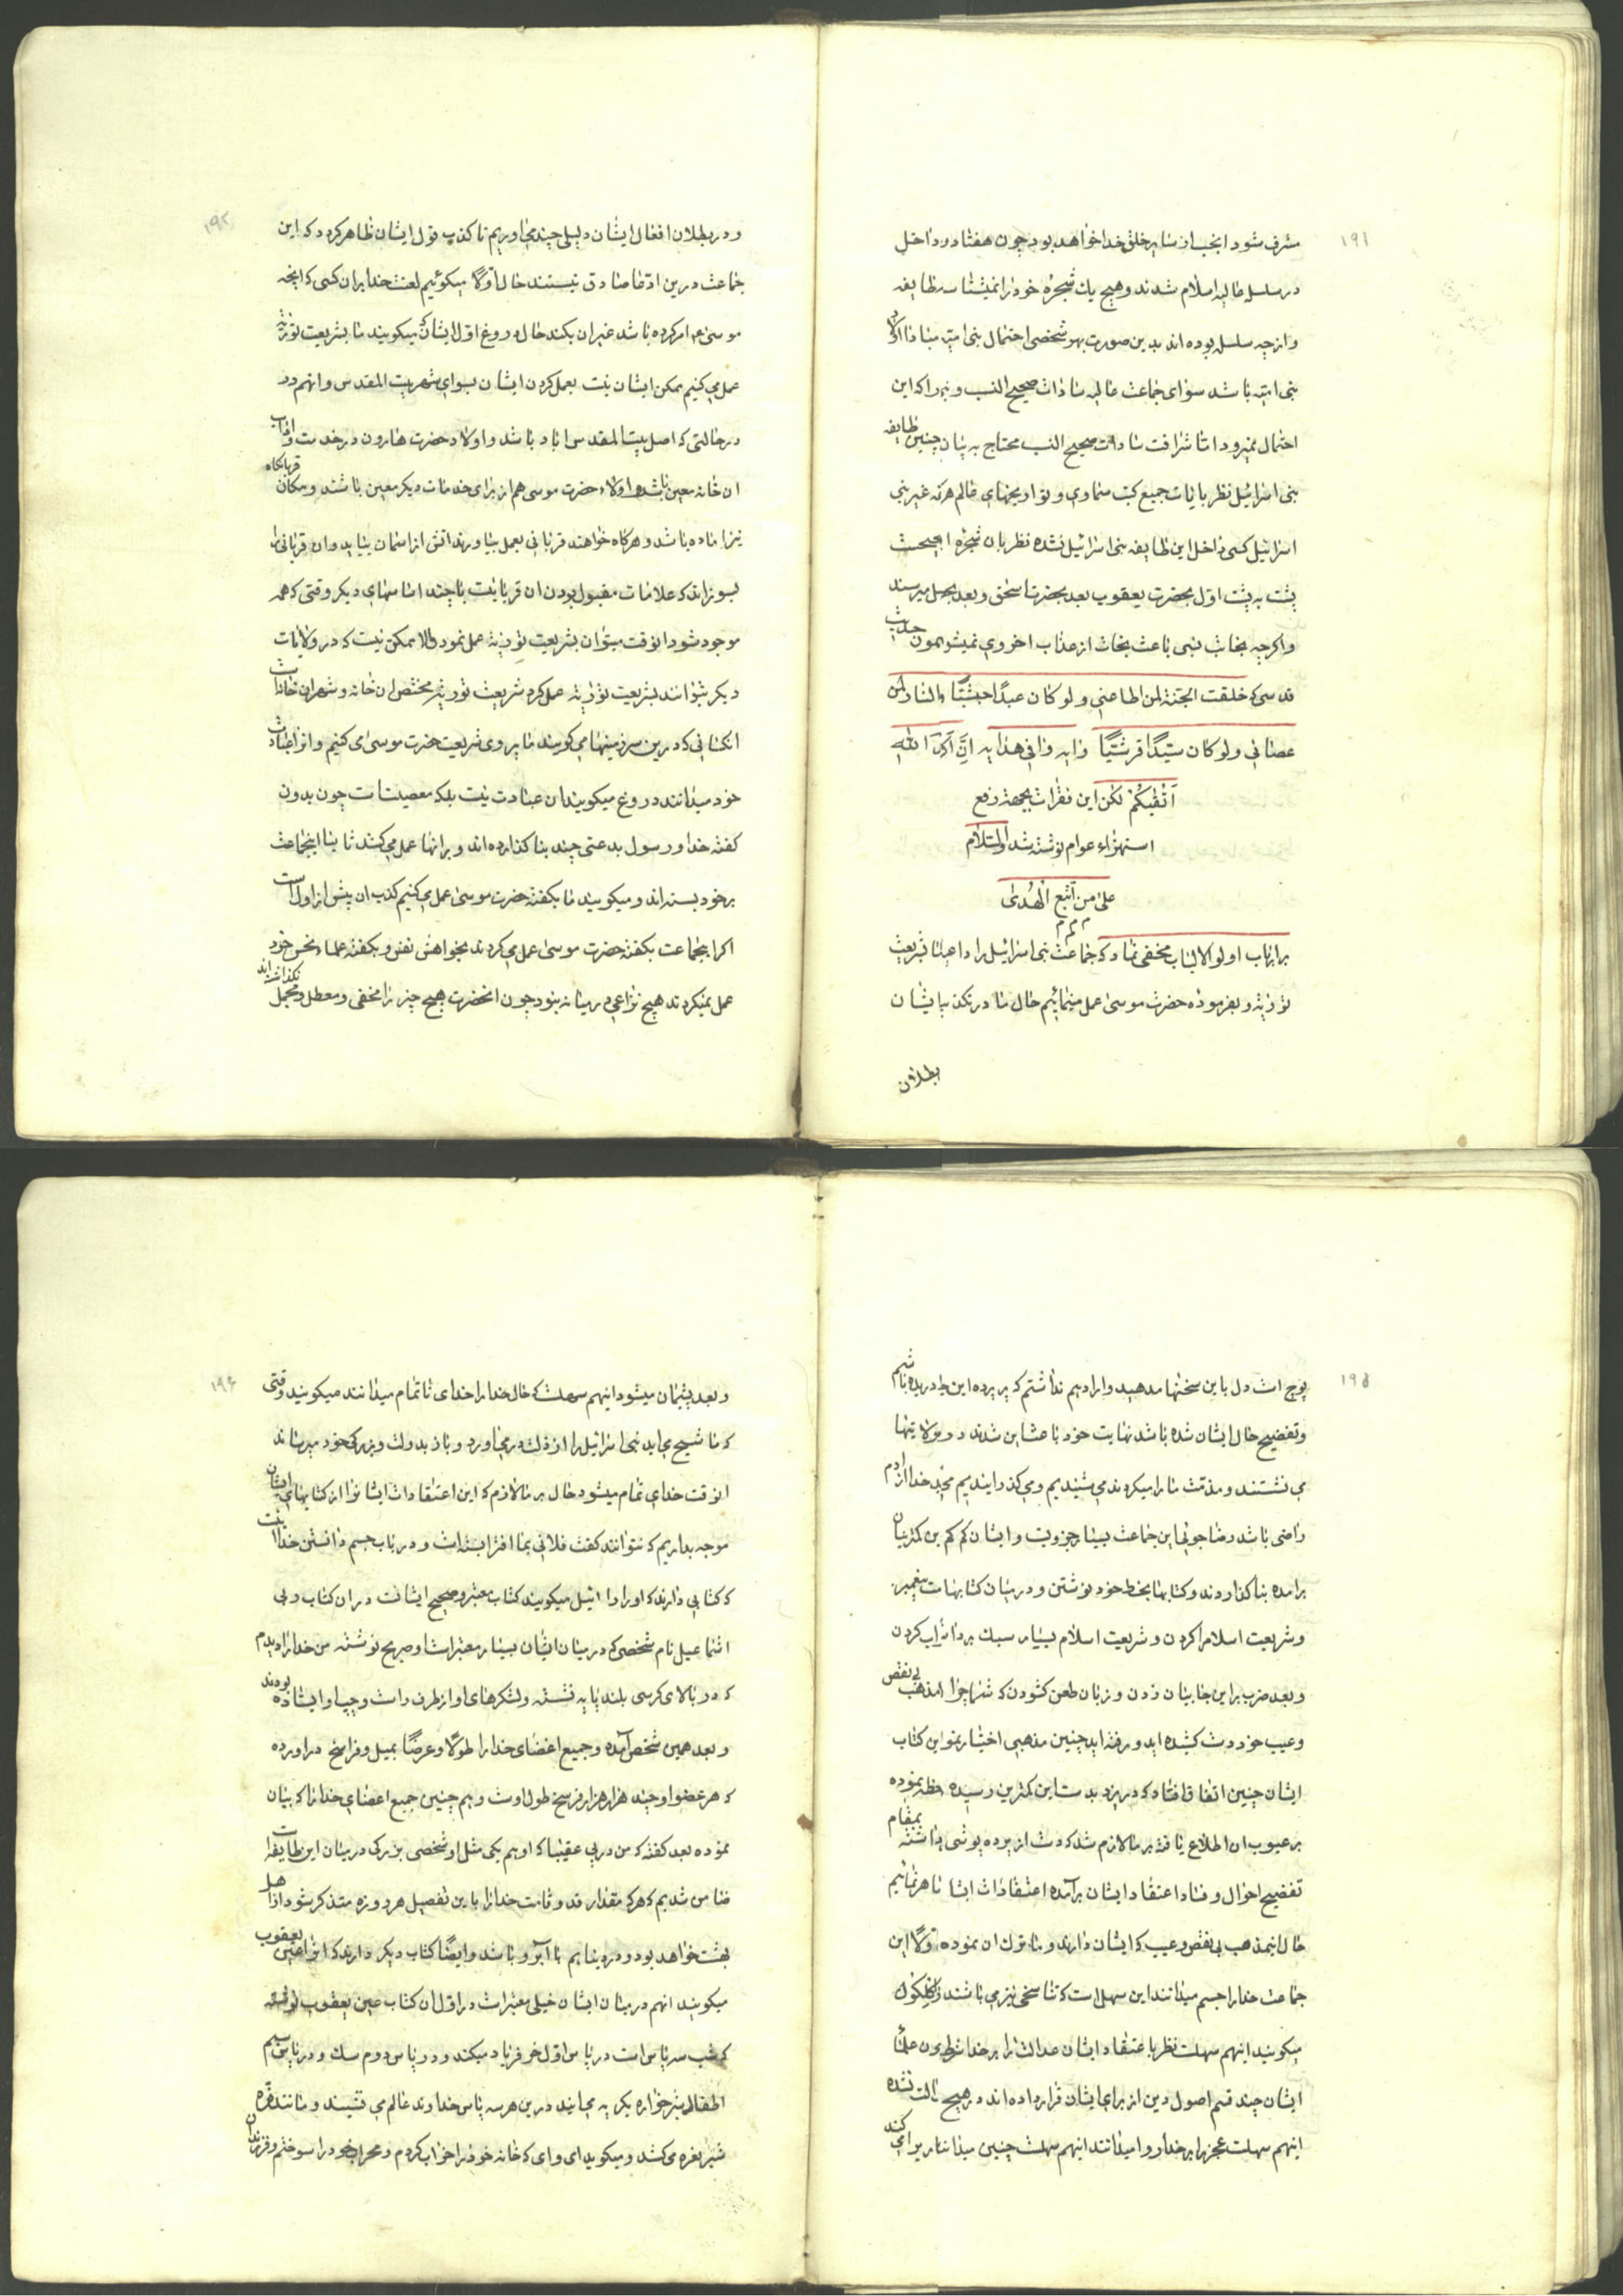 ۱۹۱
مشرف شود انجب از سایر خلق خدا خواهد بود چون هفتاد در داخل
در سلسله عالیه اسلام شدند و هیچ یك شجره خود را نمیشناسد طایفه
و از چه سلسله بوده اند بدین صورت بهر شخصی احتمال بنی امیه مبادا اولاد
بنی امیه باشد سوای جماعت عالیه سادات صحیح النسب و نیز اکه این
احتمال نمیرود اما شرافت سادات صحیح النسب محتاج به بیان چنین طایفه
بنی اسرائیل نظر بایات جمیع کتب سماوی و تواریخهای عالم هرکه غیر بنی
اسرائیل کسی داخل این طایفه بنی اسرائیل نشده نظر بان شجره ایحیحت
پشت به پشت اول بحضرت یعقوب بعد بحضرت اسحق و بعد بخلیل میرسند
و اگرچه نجابت نسبی باعث نجات از عذاب اخروی نمیشود چون حدیث
قدسی که خلقت الجنة لمن اطاعنی و لو کان عبدًا حبشیًّا والنار لمن
عصانی و لو کان سیّدًا قرشیًّا وایه وافی هدایه انّ اکرمکم عند الله
اتقیکُمْ لکن این فقرات بجهة رفع
استهزاء عوام نوشته شد والسّلام
علی من اتّبع الهُدی
م م م
بر ارباب اولو الالباب مخفی نماند که جماعت بنی اسرائیل را داعیه انکه بشریعت
توریة و بفرموده حضرت موسی عمل مینمائیم حال ما در تکذیب ایشان
بطلان
۱۹۲
و در بطلان افعال ایشان دلیلی چند میاوریم تا کذب قول ایشان ظاهر کردد که این
جماعت درین ادّعا صادق نیستند حال اوّلاً میکوئیم لعنت خدا بران کسی که انچه
موسی ع امر کرده باشد غیر ان بکند حال دروغ اول ایشان که میکویند ما بشریعت توریة
عمل می کنیم ممکن ایشان نیست بعمل کردن ایشان بسوای شهر بیت المقدس و انهم در
در حالتی که اصل بیت المقدس اباد باشد و اولاد حضرت هارون در خدمت و اداب
ان خانه معین باشد و اولاد حضرت موسی هم از برای خدمات دیکر معین باشند و مکان قربانکاه
نیز اماده باشد و هرکاه خواهند قربانی بعمل بیاورند اتش از اسمان بیاید و ان قربانی را
بسوزاند که علامات مقبول بودن ان قربانیست با چند اساسهای دیکر وقتی که همه
موجود شود انوقت میتوان بشریعت توریة عمل نمود والا ممکن نیست که در ولایات
دیکر بتوانند بشریعت توریة عمل کرد شریعت توریة مختص ان خانه و شهر ان خانه است
انکسانی که درین سرزمینها می کویند ما پیروی شریعت حضرت موسی می کنیم و انرا عبادت
خود میدانند دروغ میکویند ان عبادت نیست بلکه معصیت است چون بدون
کفته خدا و رسول بدعتی چند بنا کذارده اند و برانها عمل می کنند ثانیا اینجماعت
برخود بسته اند و میکویند ما بکفته حضرت موسی عمل می کنیم کذب ان بیش از اول است
اکر اینجماعت بکفته حضرت موسی عمل می کردند بخواهش نفس و بکفته علماء نحس خود
عمل نمیکردند هیچ نزاعی درمیانه نبود چون انحضرت هیچ چیز را مخفی و معطل و مجمل نکذاشته اند
۱۹۵
پوچ است دل باین سخنها مدهید و اراده هم نداشتم که پرده این را دریده باشم
و تفضیح حال ایشان شده باشد نهایت خود باعث این شدند در ولایتها
می نشستند و مذمّت ما را میکردند می شنیدیم و می کذرانیدیم بخدا از دم
راضی باشد رضا جوئی این جماعت بسیار جزویت و ایشان کم کم برین کمترینان
برامده بنا کذاردند و کتابها بخط خود نوشتن و درمیان کتابها مت پیغمبر
و شریعت اسلام را کردن و شریعت اسلام بسیار سبك برداشت کردن
و بعد ضرب براین جانبان زدن و زبان طعن کشودن که شما چرا از مذهب بی نقص
و عیب خود دست کشیده اید و رفته اید چنین مذهبی اختیار نمو این کتاب
ایشان چنین اتفاق افتاد که در یزد بدست این کمترین رسیده حظه نموده
بر عیوب ان اطلاع یافته بر ما لازم شد که دست از پرده پوشی برداشته بمقام
تفضیح احوال و فساد اعتقاد ایشان برآمده اعتقادات ایشان ظاهر نمائیم
حال اینمذهب بی نقص و عیب که ایشان دارند و ما ترك ان نموده اولاً این
جماعت خدا را جسم میدانند این سهل است که تناسخی نیز می باشند
میکویند اینهم سهلست نظر باعتقاد ایشان عدالت را بر خدا شرط علمای
ایشان چند قسم اصول دین از برای ایشان قرار داده اند در هیچ نشده
اینهم سهلست عجز را بر خدا روا میدانند اینهم سهلست چنین میدانند
۱۹۴
و بعد پشیمان میشود اینهم سهلست که حال خدا را خدای ناتمام میدانند میکویند وقتی
که ماشیح می اید بنی اسرائیل را از ذلت برمیاورد و باز بدولت و بزرکی خود میرساند
انوقت خدای تمام میشود حال بر ما لازم که این اعتقادات ایشانرا از کتابهای ایشان
موجه بداریم که نتوانند کفت فلانی بما افترا بسته است و در باب جسم دانستن خدا
که کتابی دارند که اورا دانئیل میکویند کتاب معتبر و صحیح ایشانست دران کتاب دبی
اشماعیل نام شخصی که درمیان ایشان بسیار معتبر است او صریح نوشته من خدا را دیدم
که در بالای کرسی بلند پایه نشسته و لشکرهای او از طرف راست و چپ او ایستاده بودند
و بعد همین شخص آمده و جمیع اعضای خدا را طولًا و عرضًا بمیل و فراسخ دراورده
که هر عضو او چند هزار هزار فرسخ طول اوست و هم چنین جمیع اعضای خدا را که بیان
نموده بعد کفته که من و ربی عقیبا که او هم یکی مثل او شخصی بزرکی درمیان این طایفه است
ضامن شدیم که هر که مقدار قد و قامت خدا را باین تفصیل هر روزه متذکر شود از اهل
بهشت خواهد بود و در دنیا هم با آبرو باشد و ایضًا کتاب دیکر دارند که انرا عین یعقوب
میکویند انهم درمیان ایشان خیلی معتبر است در اول ان کتاب عین یعقوب نوشته
که شب سه پاس است در پاس اول خر فریاد میکند و در پاس دوم سك و در پاس سیم
اطفال شیرخواره بکریه می ایند درین هر سه پاس خداوند عالم می نشیند و مانند نعره
شیر نعره می کشد و میکوید ای وای که خانه خود را خراب کردم و محراب خود را سوختم و فرزندان